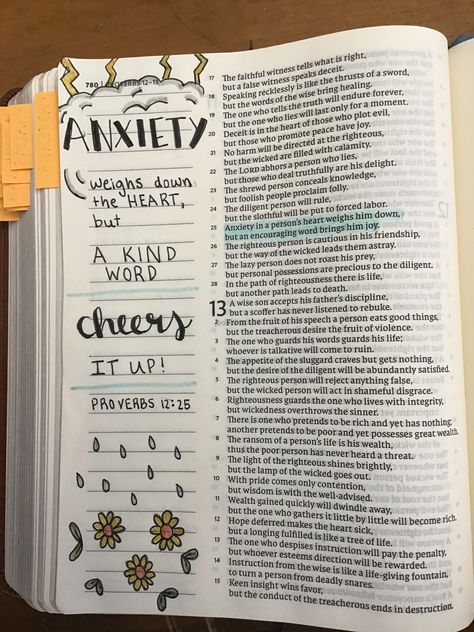 780 PROVERBS 12–13
ANXIETY
weighs down
the HEART,
but
A KIND
WORD
cheers
IT UP!
PROVERBS 12:25
17 The faithful witness tells what is right,
but a false witness speaks deceit.
18 Speaking recklessly is like the thrusts of a sword,
but the words of the wise bring healing.
19 The one who tells the truth will endure forever,
but the one who lies will last only for a moment.
20 Deceit is in the heart of those who plot evil,
but those who promote peace have joy.
21 No harm will be directed at the righteous,
but the wicked are filled with calamity.
22 The LORD abhors a person who lies,
but those who deal truthfully are his delight.
23 The shrewd person conceals knowledge,
but foolish people proclaim folly.
24 The diligent person will rule,
but the slothful will be put to forced labor.
25 Anxiety in a person's heart weighs him down,
but an encouraging word brings him joy.
26 The righteous person is cautious in his friendship,
but the way of the wicked leads them astray.
27 The lazy person does not roast his prey,
but personal possessions are precious to the diligent.
28 In the path of righteousness there is life,
but another path leads to death.
13 A wise son accepts his father's discipline,
but a scoffer has never listened to rebuke.
2 From the fruit of his speech a person eats good things,
but the treacherous desire the fruit of violence.
3 The one who guards his words guards his life;
whoever is talkative will come to ruin.
4 The appetite of the sluggard craves but gets nothing,
but the desire of the diligent will be abundantly satisfied.
5 The righteous person will reject anything false,
but the wicked person will act in shameful disgrace.
6 Righteousness guards the one who lives with integrity,
but wickedness overthrows the sinner.
7 There is one who pretends to be rich and yet has nothing;
another pretends to be poor and yet possesses great wealth.
8 The ransom of a person's life is his wealth,
thus the poor person has never heard a threat.
9 The light of the righteous shines brightly,
but the lamp of the wicked goes out.
10 With pride comes only contention,
but wisdom is with the well-advised.
11 Wealth gained quickly will dwindle away,
but the one who gathers it little by little will become rich.
12 Hope deferred makes the heart sick,
but a longing fulfilled is like a tree of life.
13 The one who despises instruction will pay the penalty,
but whoever esteems direction will be rewarded.
14 Instruction from the wise is like a life-giving fountain,
to turn a person from deadly snares.
15 Keen insight wins favor,
but the conduct of the treacherous ends in destruction.